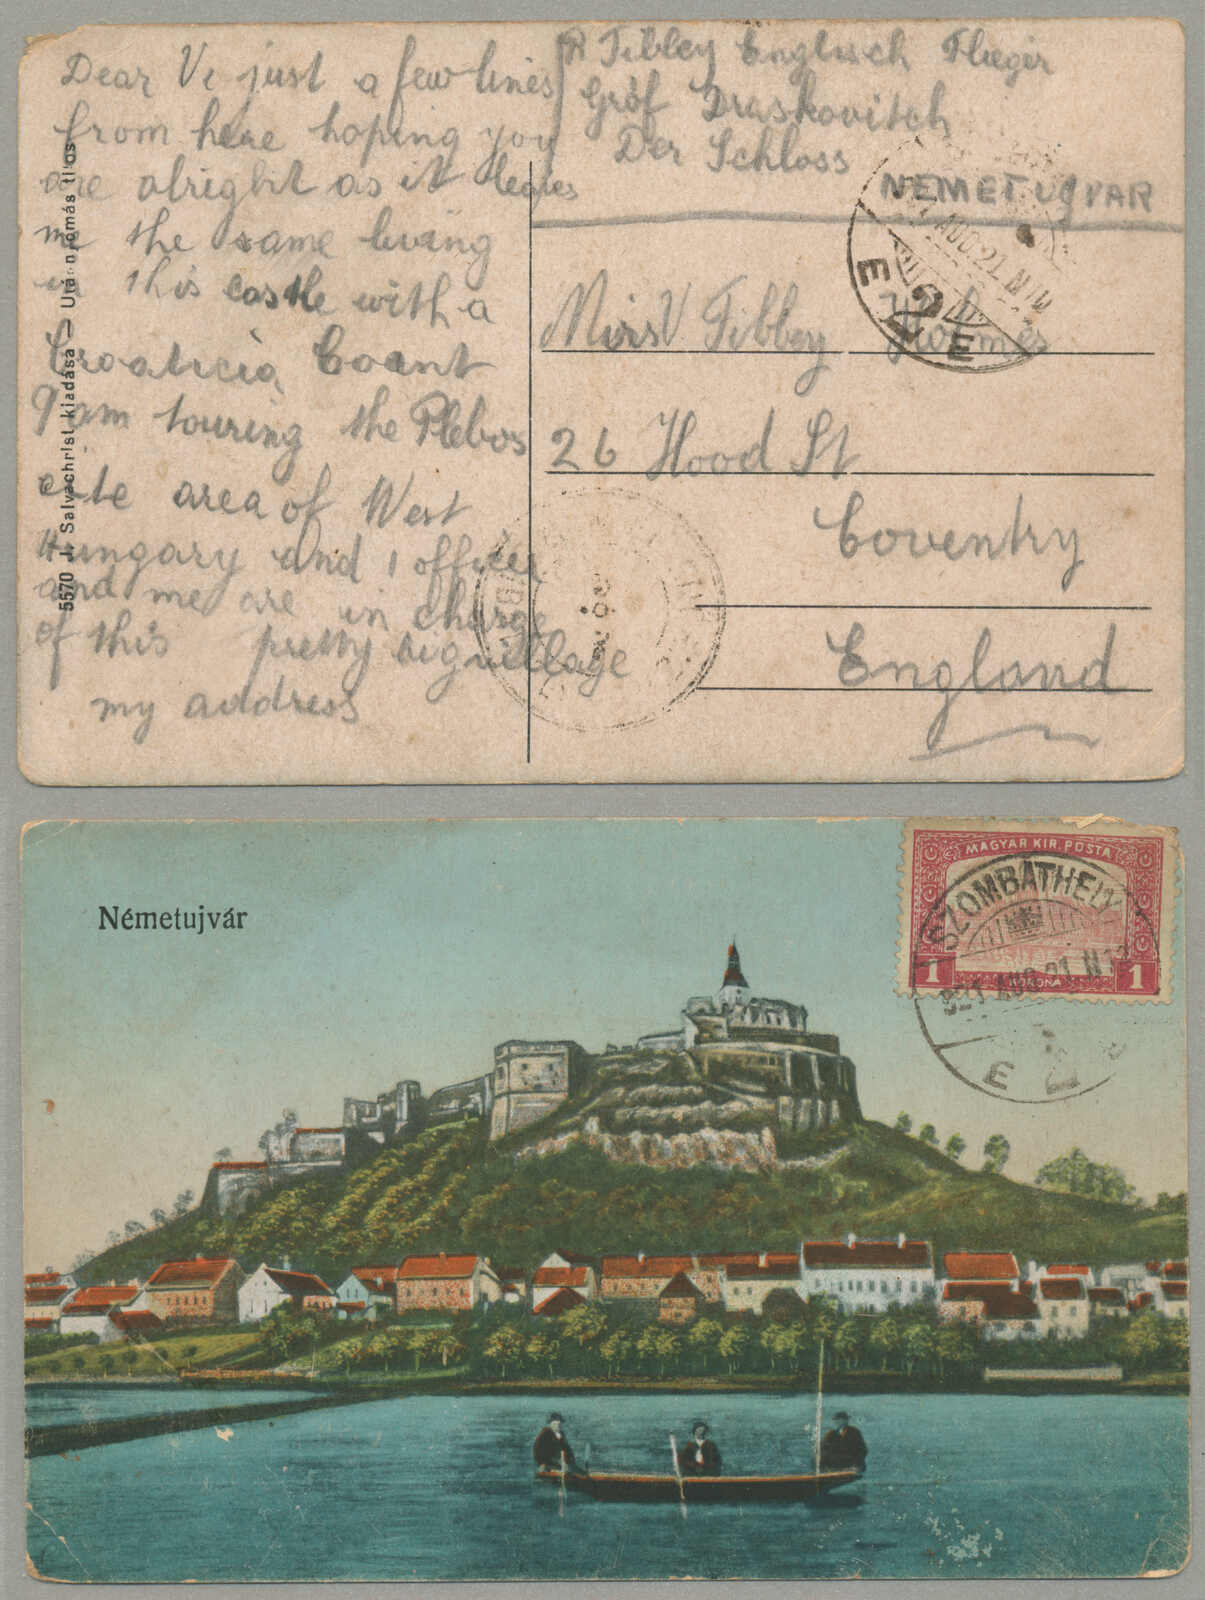 Dear Vi just a few lines
from here hoping you
are alright as it
me the same living
in this castle with a
Croaticia Coant
I am touring the Plebos
cite area of West
Hungary and 1 officer
and me are in charge
of this pretty big village
my address
R Tibbey Englisch Flieger
Gróf Draskovitch
Der Schloss
NEMETUGVAR
Mirs V Tibbey Holmes
26 Hood St
Coventry
England
5570 J. Salvachrist kiadása — Utánnyomás tilos
AUG.21.N
E
Németujvár
MAGYAR KIR. POSTA
1 KORONA 1
SZOMBATHELY
921 AUG 21 N12
E